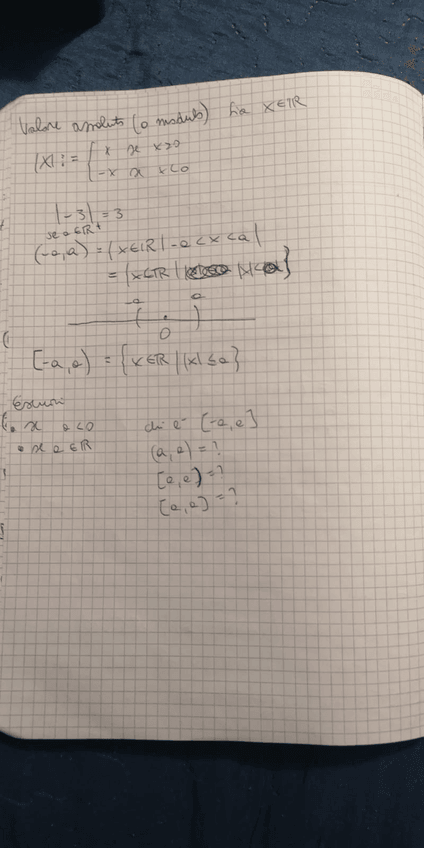 Valore assoluto (o modulo) Sia x∈ℝ
|x| := { x se x>0
-x se x<0
|-3| = 3
se a∈ℝ⁺
(-a,a) = {x∈ℝ | -a<x<a}
= {x∈ℝ | |x|<a}
-a a
0
[-a,a) = {x∈ℝ | |x|≤a}
Esercizi
• se a<0 chi è [-a,a]
• se a∈ℝ (a,a) = ?
[a,a) = ?
[a,a] = ?